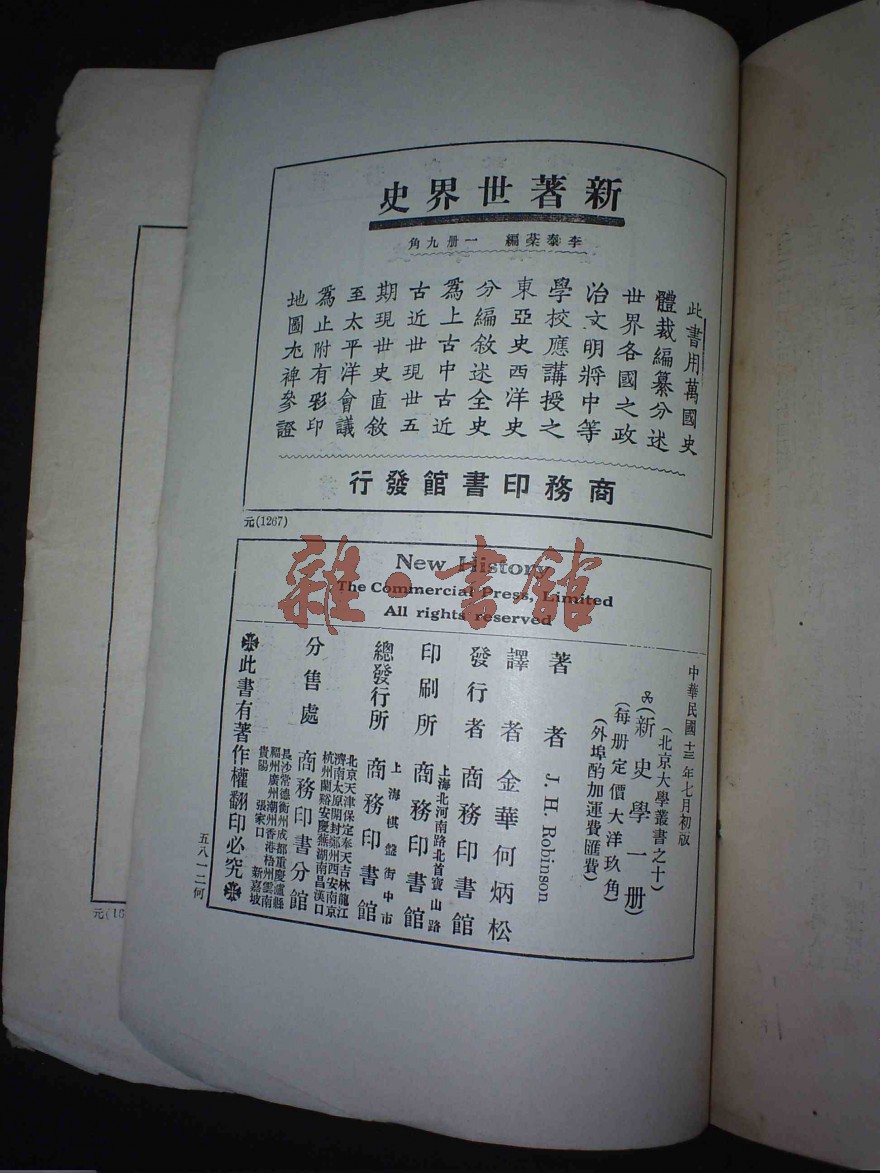 新著世界史
李泰棻編　一册九角
此書用萬國史
體裁編纂分述
世界各國之政
治文明將中等
學校應講授之
東亞史西洋史
分編敘述全史
爲上古中古近
古近世現世五
期現世史直敘
至太平洋會議
爲止附有彩印
地圖尤裨參證
商務印書館發行
元(1267)
雜·書館
New History
The Commercial Press, Limited
All rights reserved
中華民國十三年七月初版
(北京大學叢書之十)
(新史學一册)
(每册定價大洋玖角)
(外埠酌加運費匯費)
著者 J. H. Robinson
譯者 金華何炳松
發行者 商務印書館
上海北河南路北首寶山路
印刷所 商務印書館
上海棋盤街中市
總發行所 商務印書館
北京天津保定奉天吉林龍江
濟南太原開封鄭州西安南京
杭州蘭谿安慶蕪湖南昌漢口
分售處 商務印書分館
長沙常德衡州成都重慶瀘縣
福州廣州潮州香港梧州雲南
貴陽 張家口 新嘉坡
此書有著作權翻印必究
五八一二何
元(16